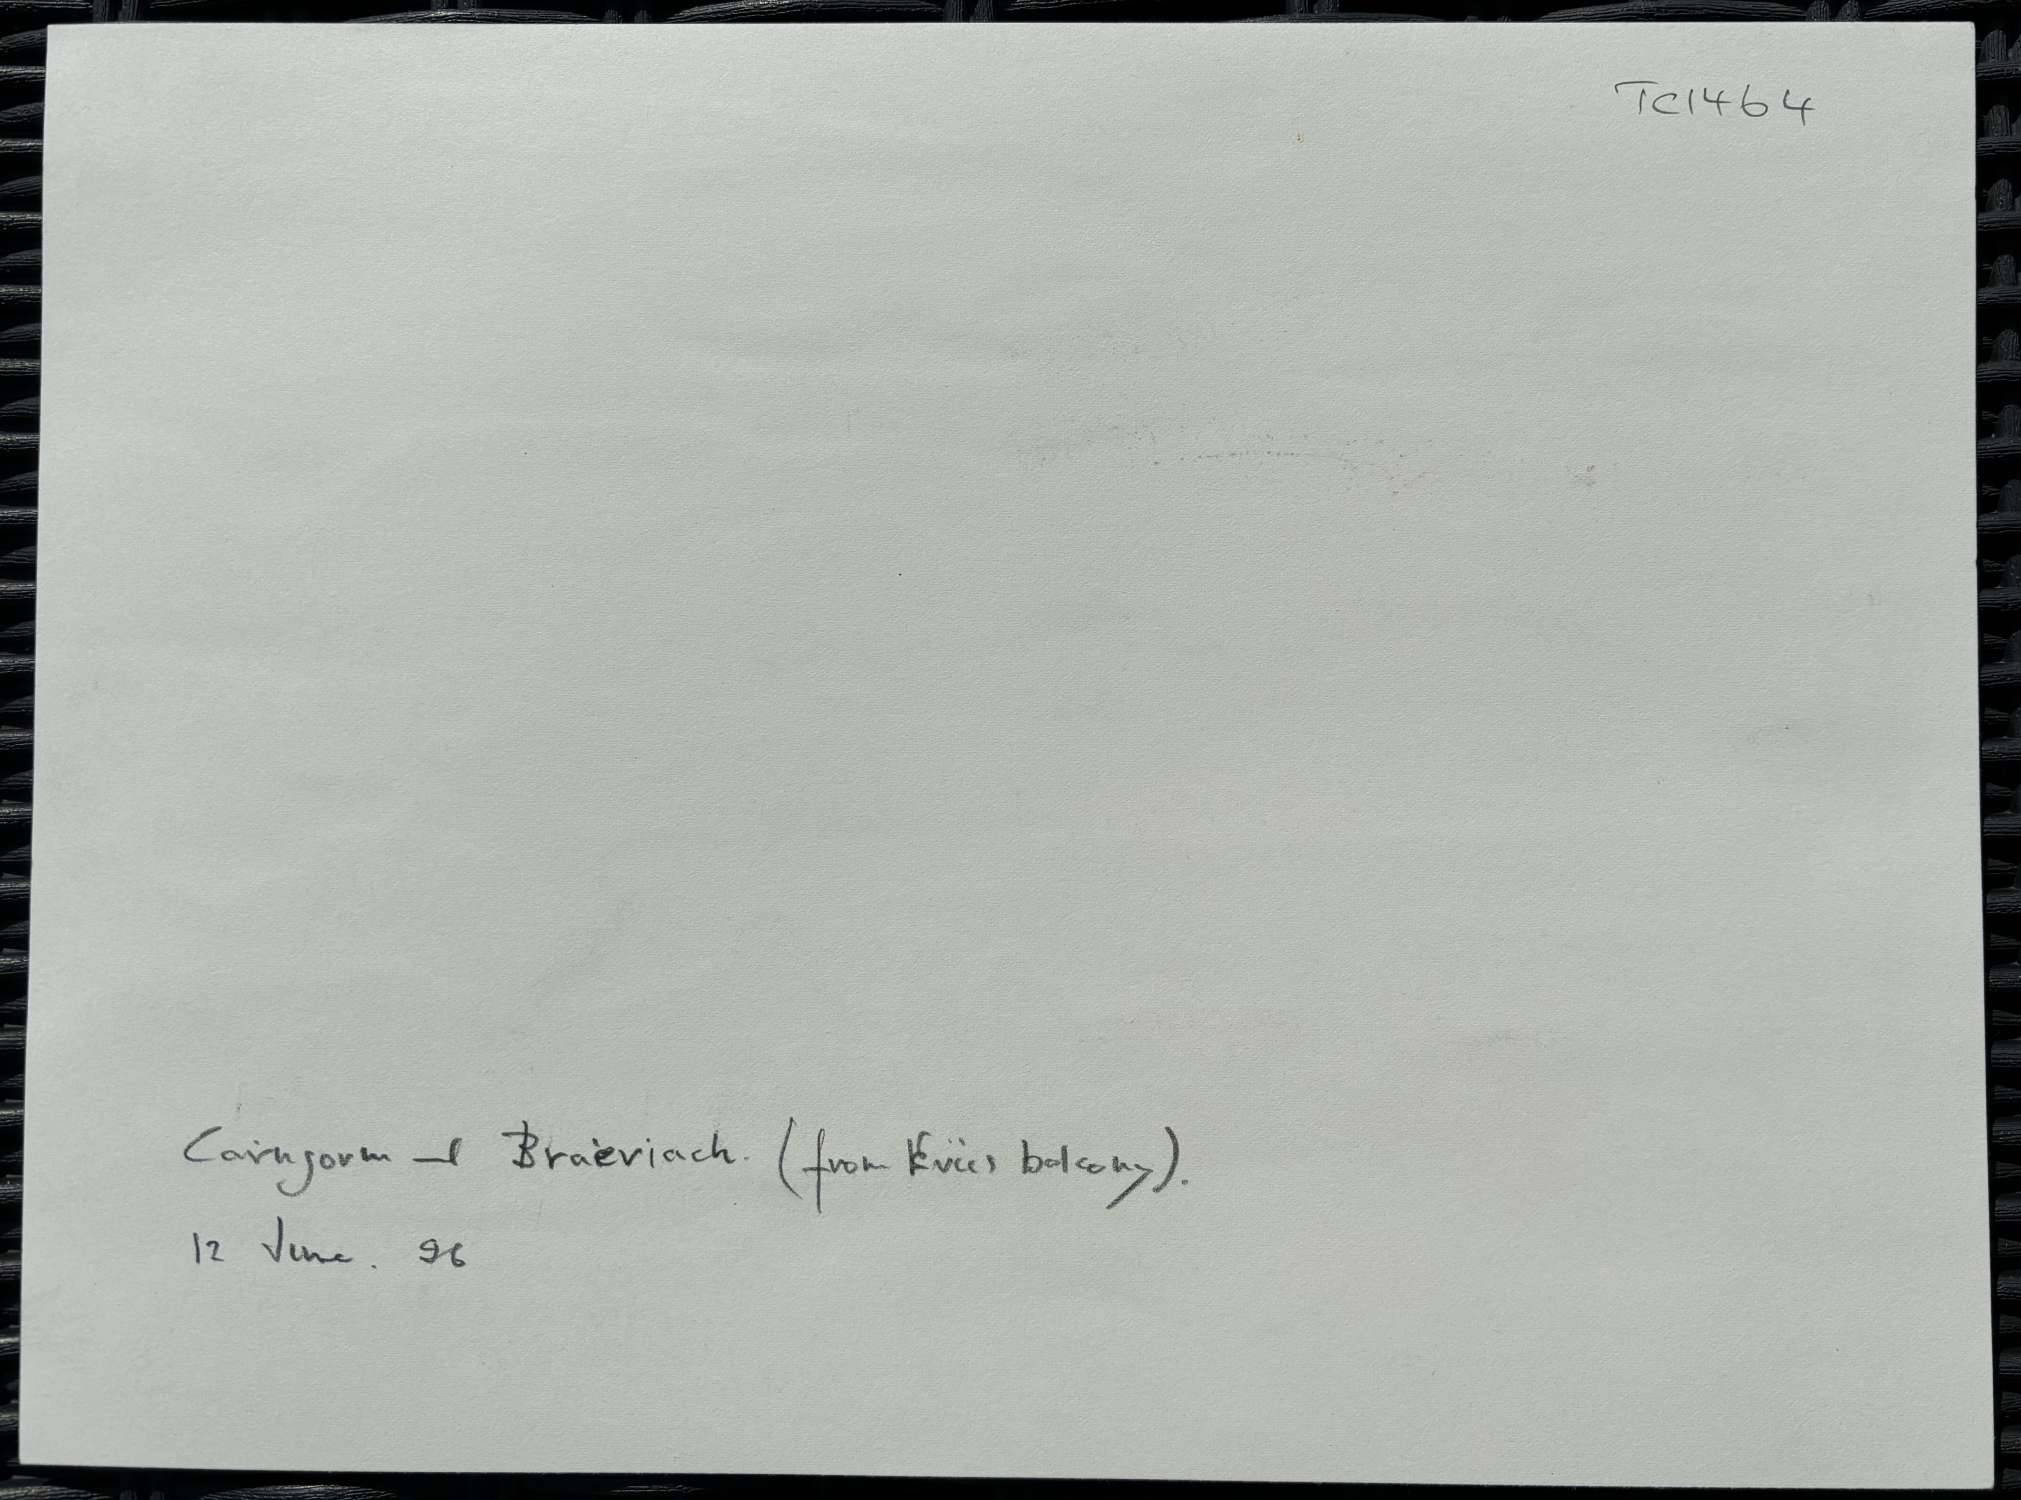 TC1464
Cairngorm and Braeriach. (from balcony).
12 June. 96